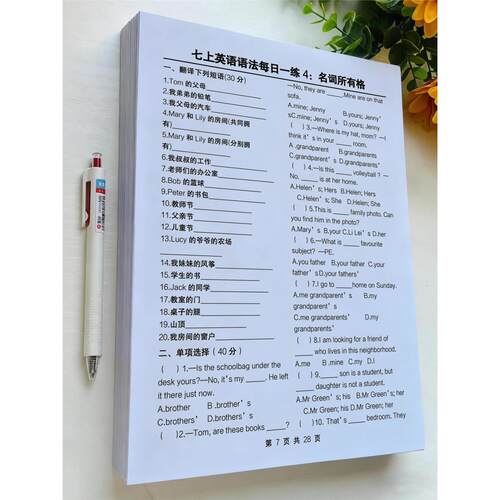 七上英语语法每日一练 4：名词所有格
一、翻译下列短语(30 分)
1.Tom 的父母
2.我弟弟的铅笔
3.我父母的汽车
4.Mary 和 Lily 的房间(共同拥
有)
5.Mary 和 Lily 的房间(分别拥
有)
6.我叔叔的工作
7.老师们的办公室
8.Bob 的篮球
9.Peter 的书包
10.教师节
11.父亲节
12.儿童节
13.Lucy 的爷爷的农场
14.我妹妹的风筝
15.学生的书
16.Jack 的同学
17.教室的门
18.桌子的腿
19.山顶
20.我房间的窗户
二、单项选择 (40 分)
( ) 1.—Is the schoolbag under the
desk yours?—No, it's my ____. He left
it there just now.
A.brother B.brother's
C.brothers D.brothers's
( )2.—Tom, are these books _____?
—No, they are _____.Mine are on that
sofa.
A.mine; Jenny B.yours; Jenny'
sC.mine; Jenny's D.yours; Jenny
( )3.—Where is my hat, mom? —I
think it's in your ____ room.
A.grandparent B.grandparents
C.grandparent's D.grandparents'
( )4.—Is this _____ volleyball？—
No. ____ is at her home.
A.Helen's; Hers B.Helen; Hers
C.Helen's; She D.Helen; She
( )5.This is ____ family photo. Can
you find him in the photo?
A.Mary's B.your C.Li Lei's D.her
( )6.—What is ____ favourite
subject? —PE.
A.you father B.your father C.your
father's D.your fathers'
( )7.I go to ____home on Sunday.
A.me grandparents' B.my
grandparents'
C.me grandparents D.my
grandparents
( )8.I am looking for a friend of
____ who lives in this neighborhood.
A.me B.mine C.my D.I
( )9.____ son is a student, but
____ daughter is not a student.
A.Mr Green's; his B.Mr Green's; her
C.Mr Green; his D.Mr Green; her
( )10. That's ____ bedroom. They
第 7 页 共 28 页